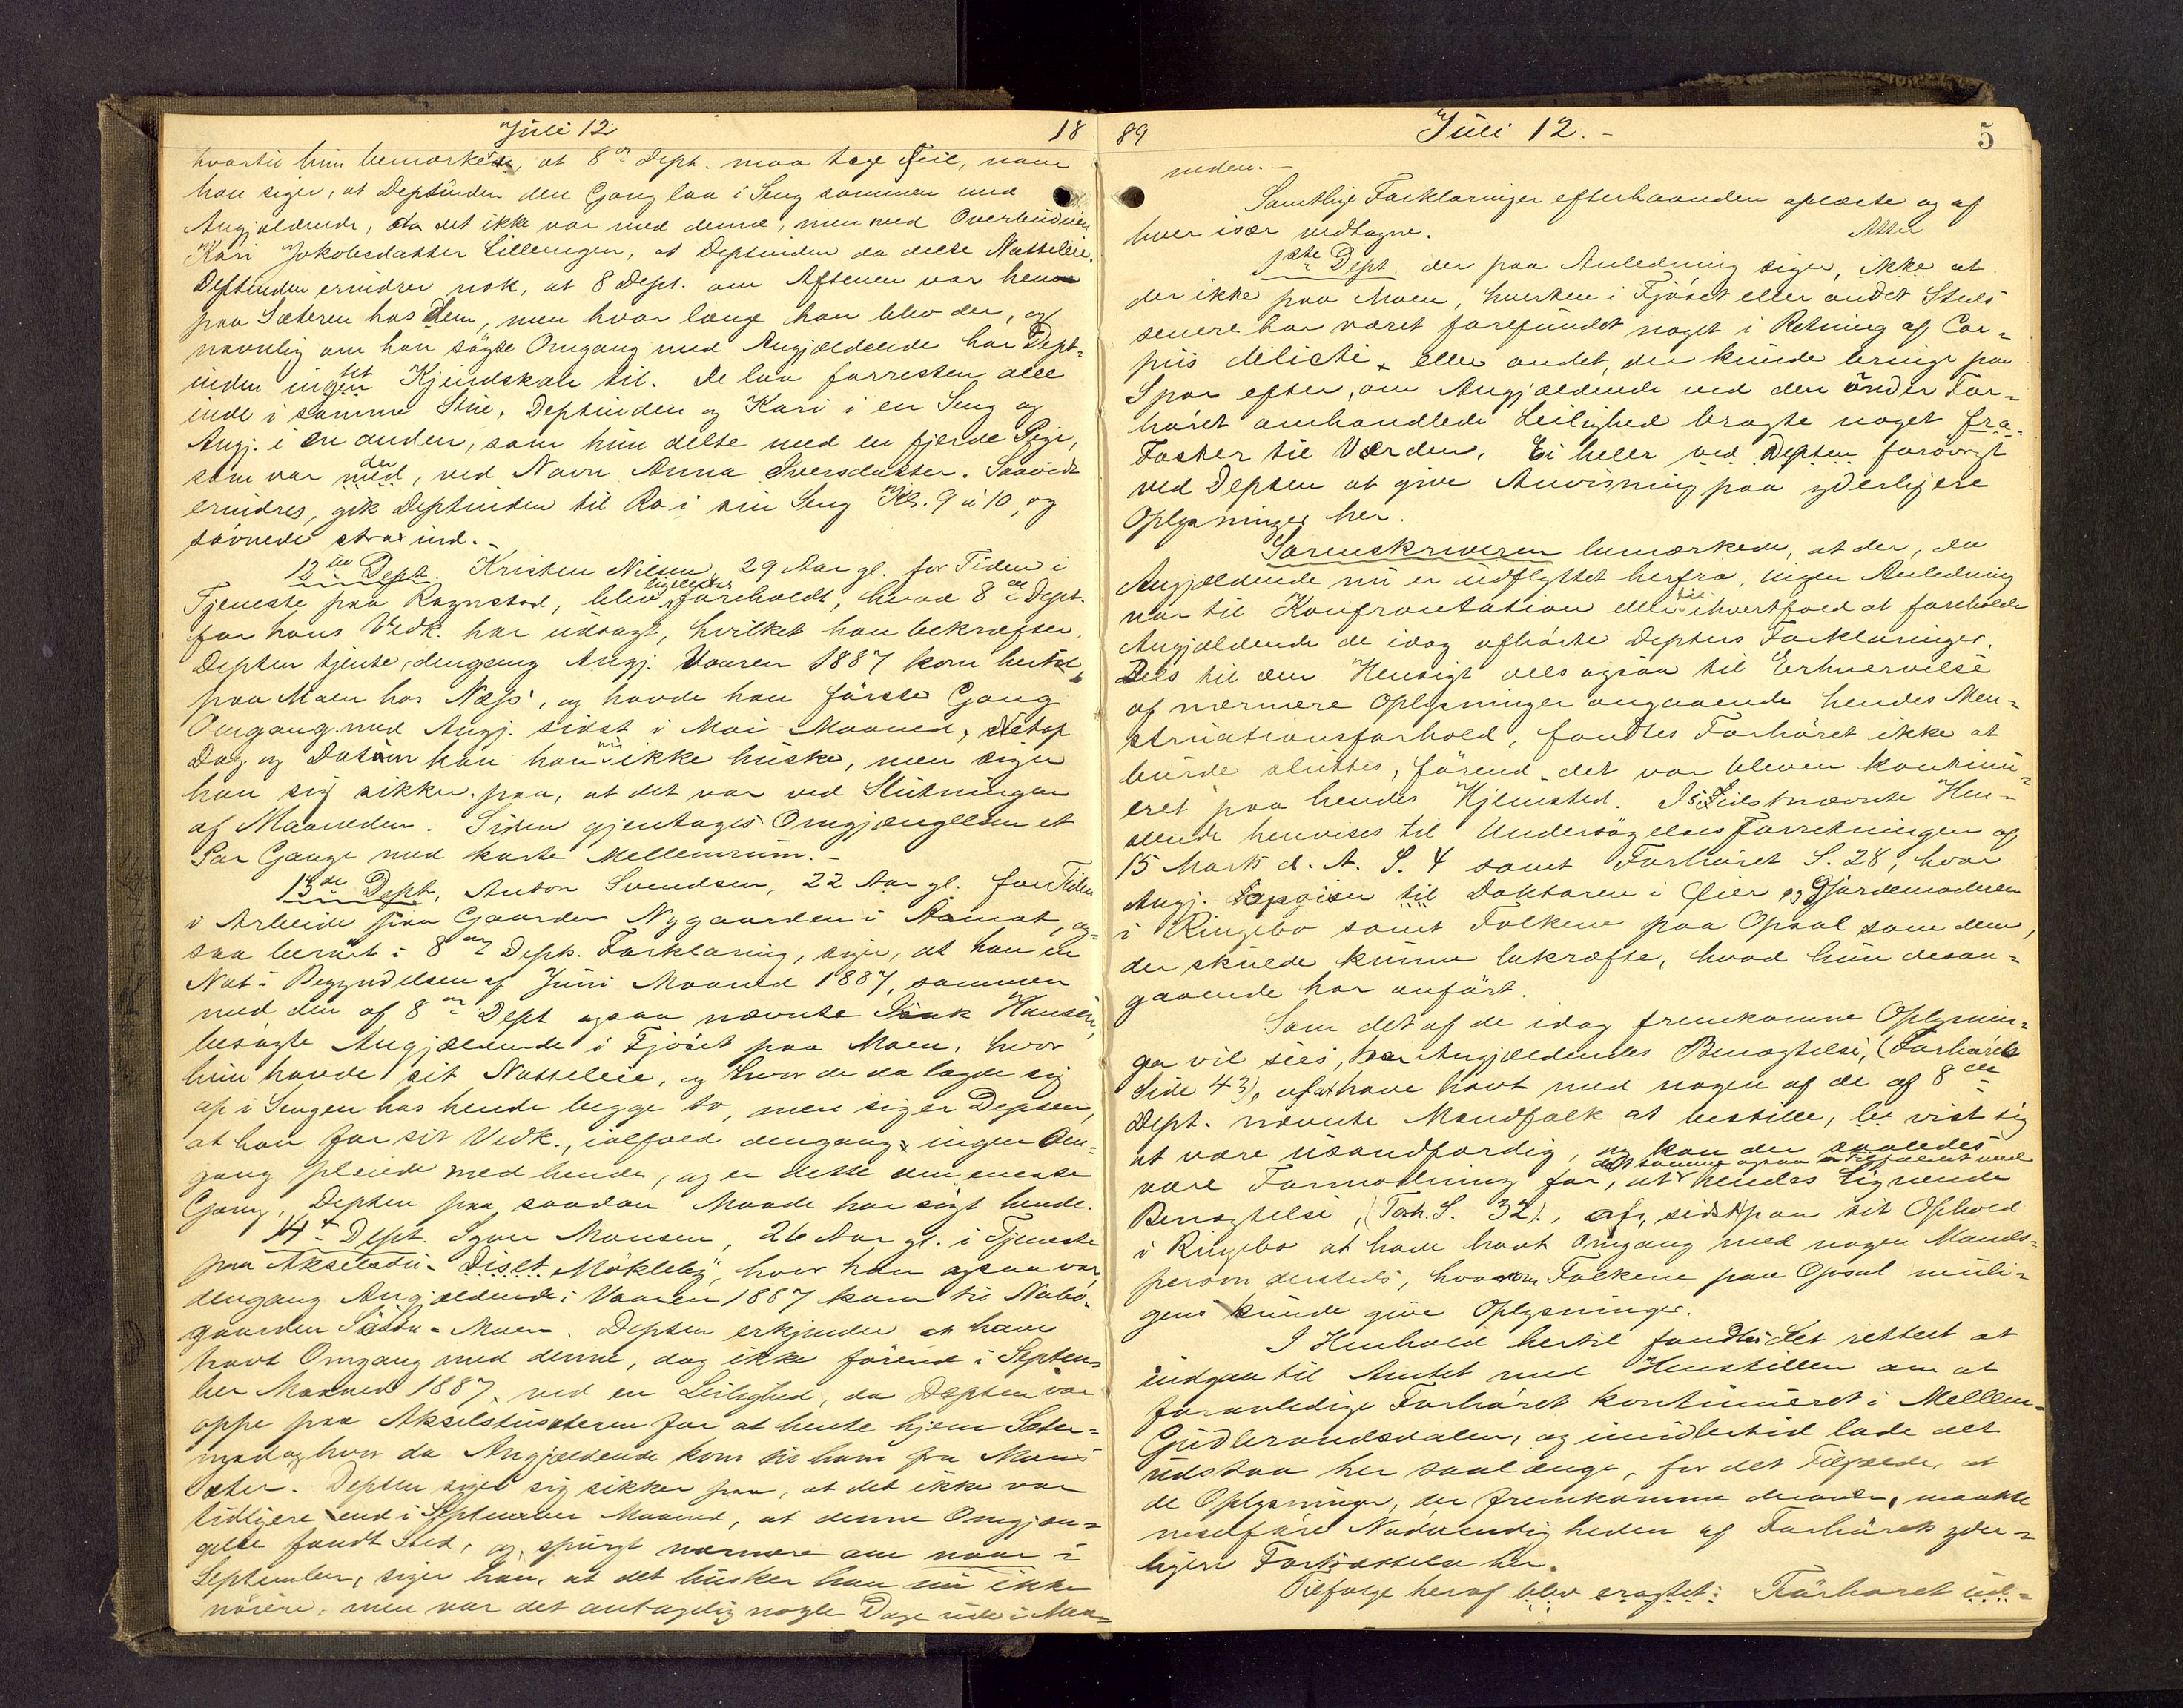 Juli 12 18
hvortil hun bemærkede, at 8de Dept. maa tage Feil, naar
han siger, at Deptinden den Gang laa i Seng sammen med
Angjældende, da det ikke var med denne, men med Overbudeien
Kari Jakobsdatter Lilleengen, at Deptinden da delte Natteleie.
Deptinden erindrer nok, at 8 Dept. om Aftenen var henne
paa Sæteren hos dem, men hvor længe han blev der, og
navnlig om han søgte Omgang med Angjældende har Dept-
inden intet Kjendskab til. De laa forresten alle
inde i samme Stue, Deptinden og Kari i en Seng og
Angj. i en anden, som hun delte med en fjerde Pige,
som var der med, ved Navn Anna Iversdatter. Saavidt
erindres, gik Deptinden til Ro i sin Seng Kl. 9 à 10, og
sovnede strax ind.-
12te Dept. Kristen Nilsen, 29 Aar gl. for Tiden i
Tjeneste paa Ragnstad, blev ligeledes foreholdt, hvad 8de Dept.
for hans Vedk. har udsagt, hvilket han bekræfter.
Depten tjente, dengang Angj. Vaaren 1887 kom hertil,
paa Moen hos Næss, og havde han første Gang
Omgang med Angj. sidst i Mai Maaned, Netop
Dag og Datum kan han nu ikke huske, men siger
han sig sikker paa, at det var ved Slutningen
af Maaneden. Siden gjentages Omgjængelsen et
Par Gange med korte Mellemrum.-
13de Dept, Anton Svendsen, 22 Aar gl. for Tiden
i Arbeide paa Gaarden Nygaarden i Aamot, og-
saa berørt i 8de Depts. Forklaring, siger, at han en
Nat i Begyndelsen af Juni Maaned 1887, sammen
med den af 8de Dept ogsaa nævnte Isak Hansen,
besøgte Angjældende i Fjøset paa Moen, hvor
hun havde sit Natteleie, og hvor de da lagde sig
op i Sengen hos hende begge to, men siger Depten,
at han for sit Vedk., ialfald dengang ingen Om-
gang pleiede med hende, og er dette den eneste
Gang, Depten paa saadan Maade har søgt hende.
14de Dept. Syver Monsen, 26 Aar gl. i Tjeneste
paa Akselstu- Diset Mökleby, hvor han ogsaa var,
dengang Angjældende i Vaaren 1887 kom til Nabo-
gaarden Moen. Depten erkjender at have
havt Omgang med denne, dog ikke førend i Septem-
ber Maaned 1887, ved en Leilighed, da Depten var
oppe paa Akselstusæteren for at hente hjem Sæter-
mad og hvor da Angjældende kom til ham fra Moens
Sæter. Depten siger sig sikker paa, at det ikke var
tidligere end i September Maaned, at denne Omgjæn-
gelse fandt Sted, og, spurgt nærmere om naar i
September, siger han, at det husker han nu ikke
nöiere, men var det antagelig nogle Dage ude i Maa-
89 Juli 12.- 5
neden.-
Samtlige Forklaringer efterhaanden oplæste og af
hver især vedtagne. Atter
1ste Dept. der paa Anledning siger, ikke at
der ikke paa Moen, hverken i Fjøset eller andet Steds
senere har været forefundet noget i Retning af Cor-
pus delicti eller andet, der kunde bringe paa
Spor efter, om Angjældende ved den under For-
høret omhandlede Leilighed bragte noget fra-
Foster til Verden. Ei heller ved Depten forøvrigt
ved Depten at give Anvisning paa yderligere
Oplysninger her.
Sorenskriveren bemærkede, at der, da
Angjældende nu er udflyttet herfra, ingen Anledning
var til Konfrontation eller til ihvertfald at foreholde
Angjældende de idag afhørte Depters Forklaringer.
Dels til den Hensigt dels ogsaa til Erhvervelse
af nærmere Oplysninger angaaende hendes Men-
struationsforhold, fandtes Forhøret ikke at
burde sluttes, førend det var bleven kontinu-
eret paa hendes Hjemsted. I Sidstnævnte Hen-
seende henvises til Undersøgelsesforretningen af
15 Marts d. A. S. 4 samt Forhøret S. 28, hvor
Angj. til Doktoren i Øier og Gjordemoderen
i Ringebo samt Folkene paa Opsal som dem,
der skulde kunne bekræfte, hvad hun desan-
gaaende har anført.
Som det af de idag fremkomne Oplysnin-
ger vil sees, har Angjældendes Benægtelse, (Forhørets
Side 43), af at have havt med nogen af de af 8de
Dept. nævnte Mandfolk at bestille, vist sig
at være usandfærdig, og kan der saaledes
være Formodning for, at det samme ogsaa er Tilfældet med hendes lignende
Benægtelse, (Forh. S. 32)., af, sidst paa sit Ophold
i Ringebo at have havt Omgang med nogen Mands-
person dersteds, hvorom Folkene paa Opsal muli-
gens kunde give Oplysninger.
I Henhold hertil fandtes det rettest at
indgaa til Amtet med Henstillen om at
foranledige Forhøret kontinueret i Mellem-
Gudbrandsdalen, og imidlertid lade det
udstaa her saalænge, for det Tilfælde, at
de Oplysninger, der fremkomme derover, maatte
medføre Nødvendigheden af Forhørets yder-
ligere Fortsættelse her.
Tilfølge heraf blev eragtet: Forhøret ud-